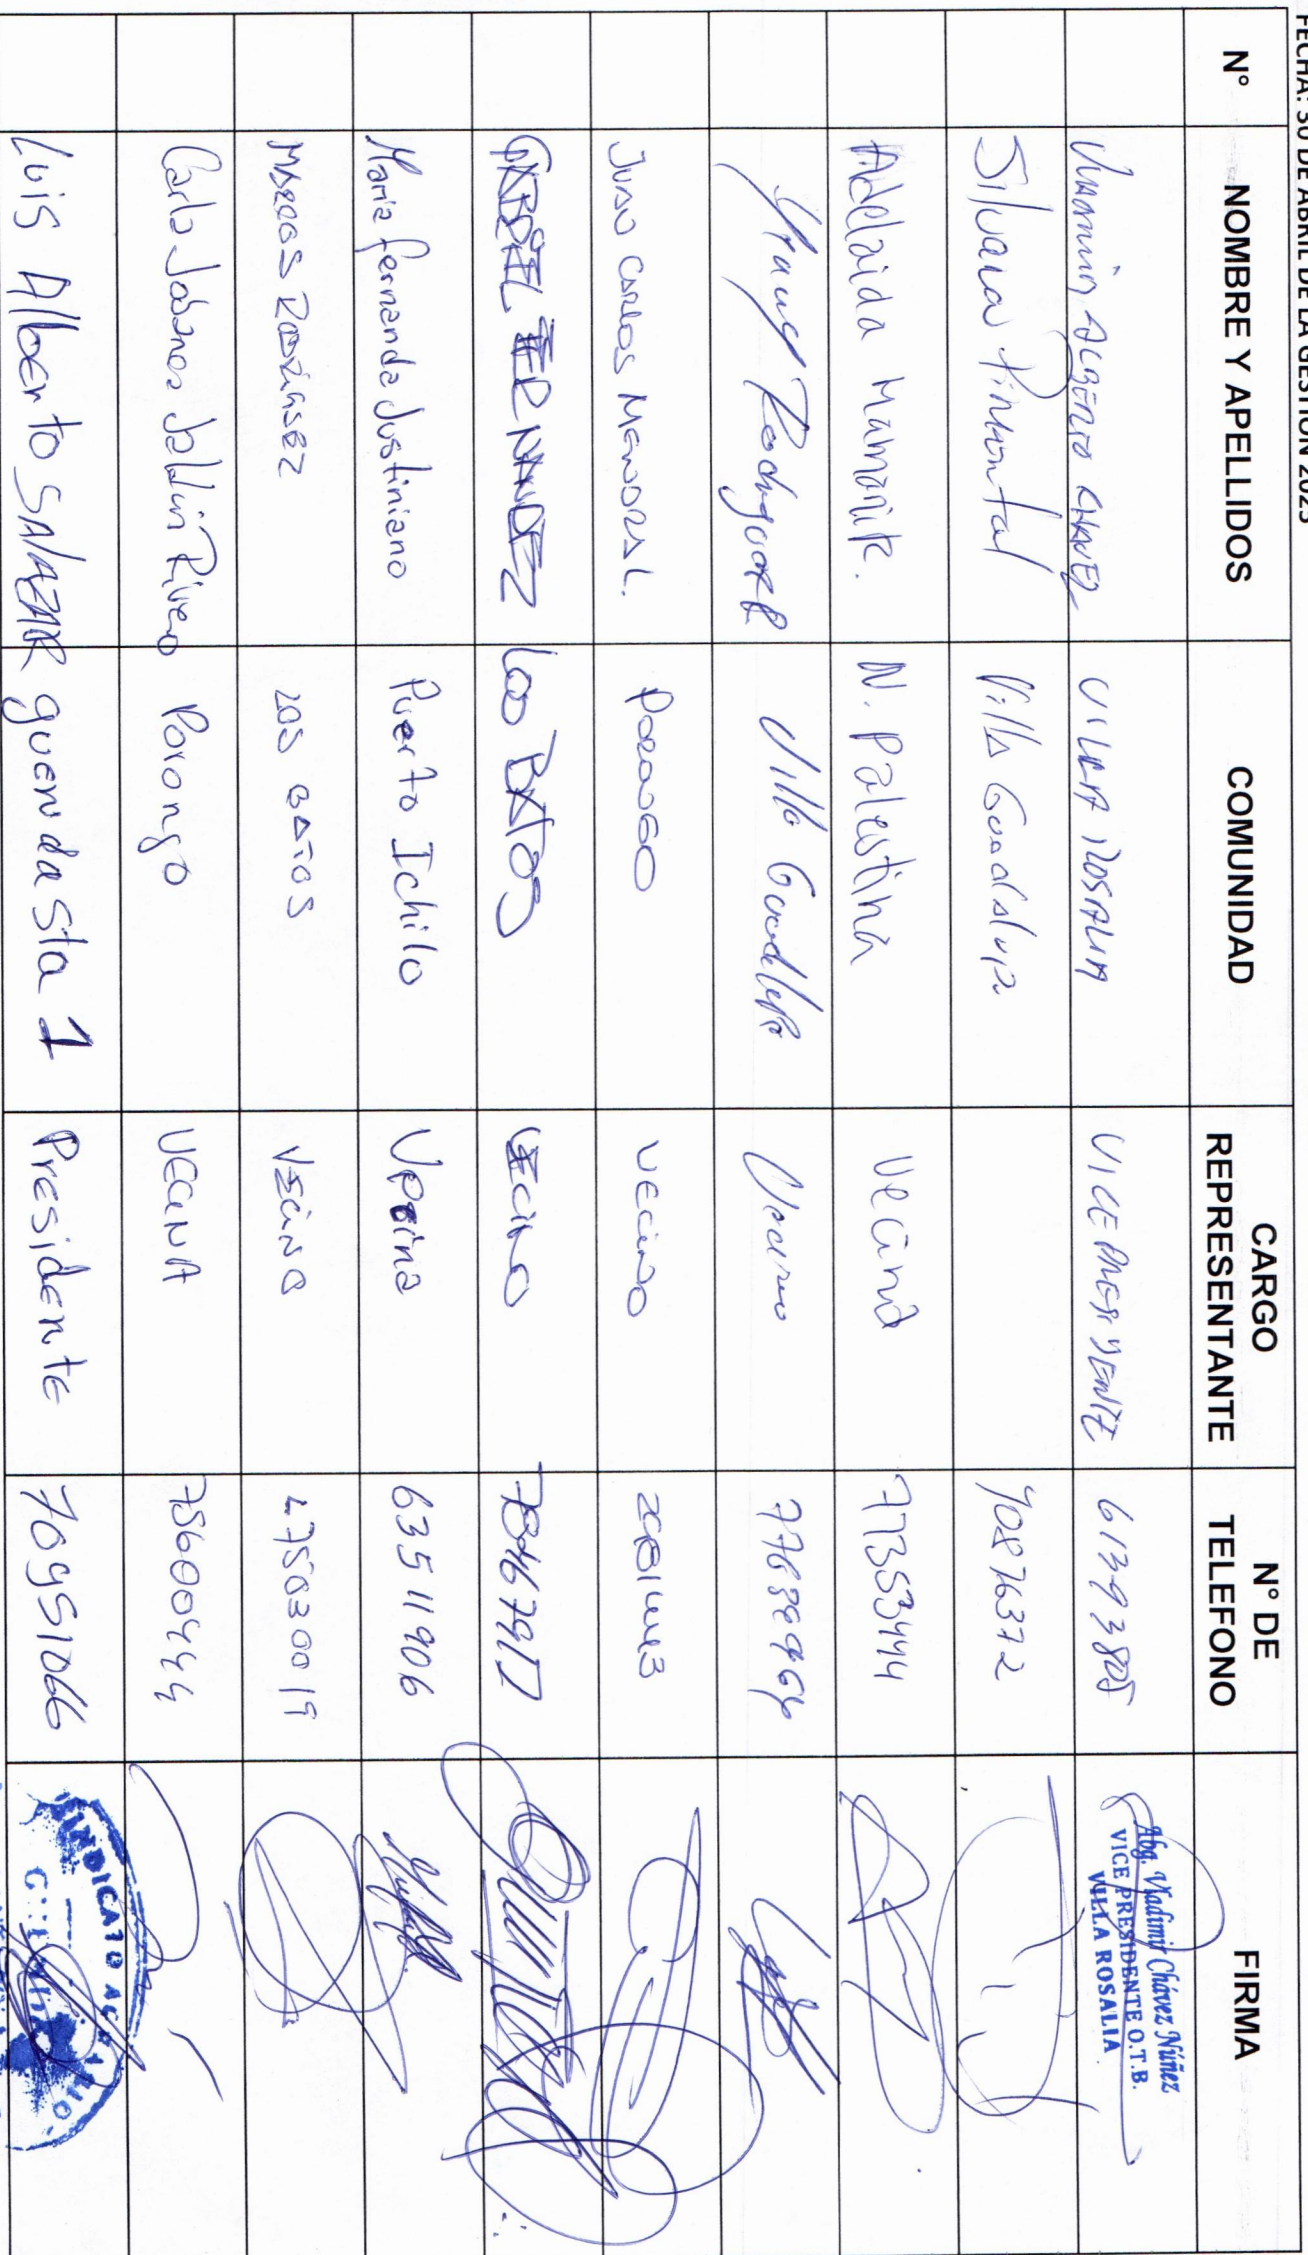 FECHA: 30 DE ABRIL DE LA GESTIÓN 2025
N° NOMBRE Y APELLIDOS COMUNIDAD CARGO REPRESENTANTE N° DE TELEFONO FIRMA
Vladimir Alberto Chavez VILLA ROSALIA VICEPRESIDENTE 61393805
Abg. Vladimir Chávez Núñez
VICE PRESIDENTE O.T.B.
VILLA ROSALIA
Silvana Pimental Villa Guadalupe 70876372
Adelaida Mamani R. N. Palestina Vecina 77353444
Rodriguez R Villa Guadalupe Vecino
Juan Carlos Mendoza L. PORONGO VECINO
GABRIEL FERNANDEZ LOS BATOS VECINO
Maria Fernanda Justiniano Puerto Ichilo Vecina 63511906
MARCOS RODRIGUEZ LOS BATOS VECINO
Carla Rivero Porongo VECINA
Luis Alberto SALAZAR guenda Sta 1 PresidentE 70951066
SINDICATO